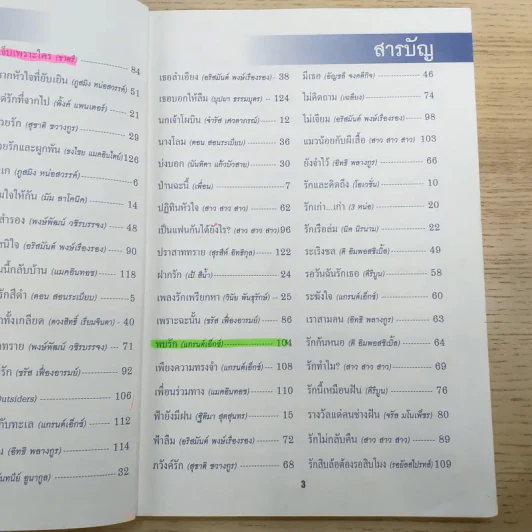 สารบัญ
จ็บเพราะใคร (ชาตรี) 84
ากหัวใจที่ยับเยิน (ภูสมิง หน่อสวรรค์) 51
ต่รักที่จากไป (พิ้งค์ แพนเตอร์) 21
วยรัก (สุชาติ ชวางกูร) 29
วยรักและผูกพัน (ธงไชย แมคอินไตย์) 126
เก (ภูสมิง หน่อสวรรค์) 6
นใจให้กัน (มัม ลาโคนิค) 14
สำรอง (พงษ์พัฒน์ วชิรบรรจง) 48
นิใจ (อริสมันต์ พงษ์เรืองรอง) 90
นนี้กลับบ้าน (แมคอินทอช) 118
รักสีดำ (ดอน สอนระเบียบ) 5
าทั้งเกลียด (ดวงสิทธิ์ เรียมจินดา) 40
ทราย (พงษ์พัฒน์ วชิรบรรจง) 71
รัก (ชรัส เฟื่องอารมย์) 92
Outsiders) 106
กับทะเล (แกรนด์เอ็กซ์) 112
น (อิทธิ พลางกูร) 114
32
เธอลำเอียง (อริสมันต์ พงษ์เรืองรอง) 38
เธอบอกให้ลืม (บุปผา ธรรมบุตร) 124
นกเจ้าโผบิน 12
นางโลม (ดอน สอนระเบียบ) 36
บ่งบอก (นันทิดา แก้วบัวสาย) 30
บ้านฉะนี้ (เพื่อน) 7
ปฏิทินหัวใจ (สาว สาว สาว) 62
เป็นแฟนกันได้ยังไร? (สาว สาว สาว) 96
ปราสาททราย (สุรสีห์ อิทธิกุล) 122
ฝากรัก (เป้ สีน้ำ) 24
เพลงรักเพรียกหา (วินัย พันธุรักษ์) 25
เพราะฉะนั้น (ชรัส เฟื่องอารมย์) 86
พบรัก (แกรนด์เอ็กซ์) 104
เพียงความทรงจำ (แกรนด์เอ็กซ์) 108
เพื่อนร่วมทาง (แมคอินทอช) 110
ฟ้ายังมีฝน (ฐิติมา สุตสุนทร) 15
ฟ้าลืม (อริสมันต์ พงษ์เรืองรอง) 72
ภวังค์รัก (สุชาติ ชวางกูร) 68
มีเธอ (อัญชลี จงคดีกิจ) 46
ไม่คิดถาม (เฉลียง) 74
ไม่เจียม (อริสมันต์ พงษ์เรืองรอง) 98
แมวน้อยกับผีเสื้อ (สาว สาว สาว) 103
ยังจำไว้ (อิทธิ พลางกูร) 66
รักและคิดถึง (โอเวชั่น) 10
รักเก่า...เก่า (3 หน่อ) 20
รักเรือล่ม (นิค นิรนาม) 22
ระเริงชล (ดิ อิมพอสซิเบิ้ล) 49
รอวันฉันรักเธอ (คีรีบูน) 58
ระฆังใจ (แกรนด์เอ็กซ์) 60
เราสามคน (อิทธิ พลางกูร) 63
รักกันหนอ (ดิ อิมพอสซิเบิ้ล) 64
รักทำไม? (สาว สาว สาว) 69
รักนี้เหมือนฝัน (คีรีบูน) 76
รางวัลแด่คนช่างฝัน (จรัล มโนเพ็ชร) 80
รักไม่กลับคืน (สาว สาว สาว) 89
รักสิบล้อต้องรอสิบโมง (รอยัลสไปรทส์) 109
3